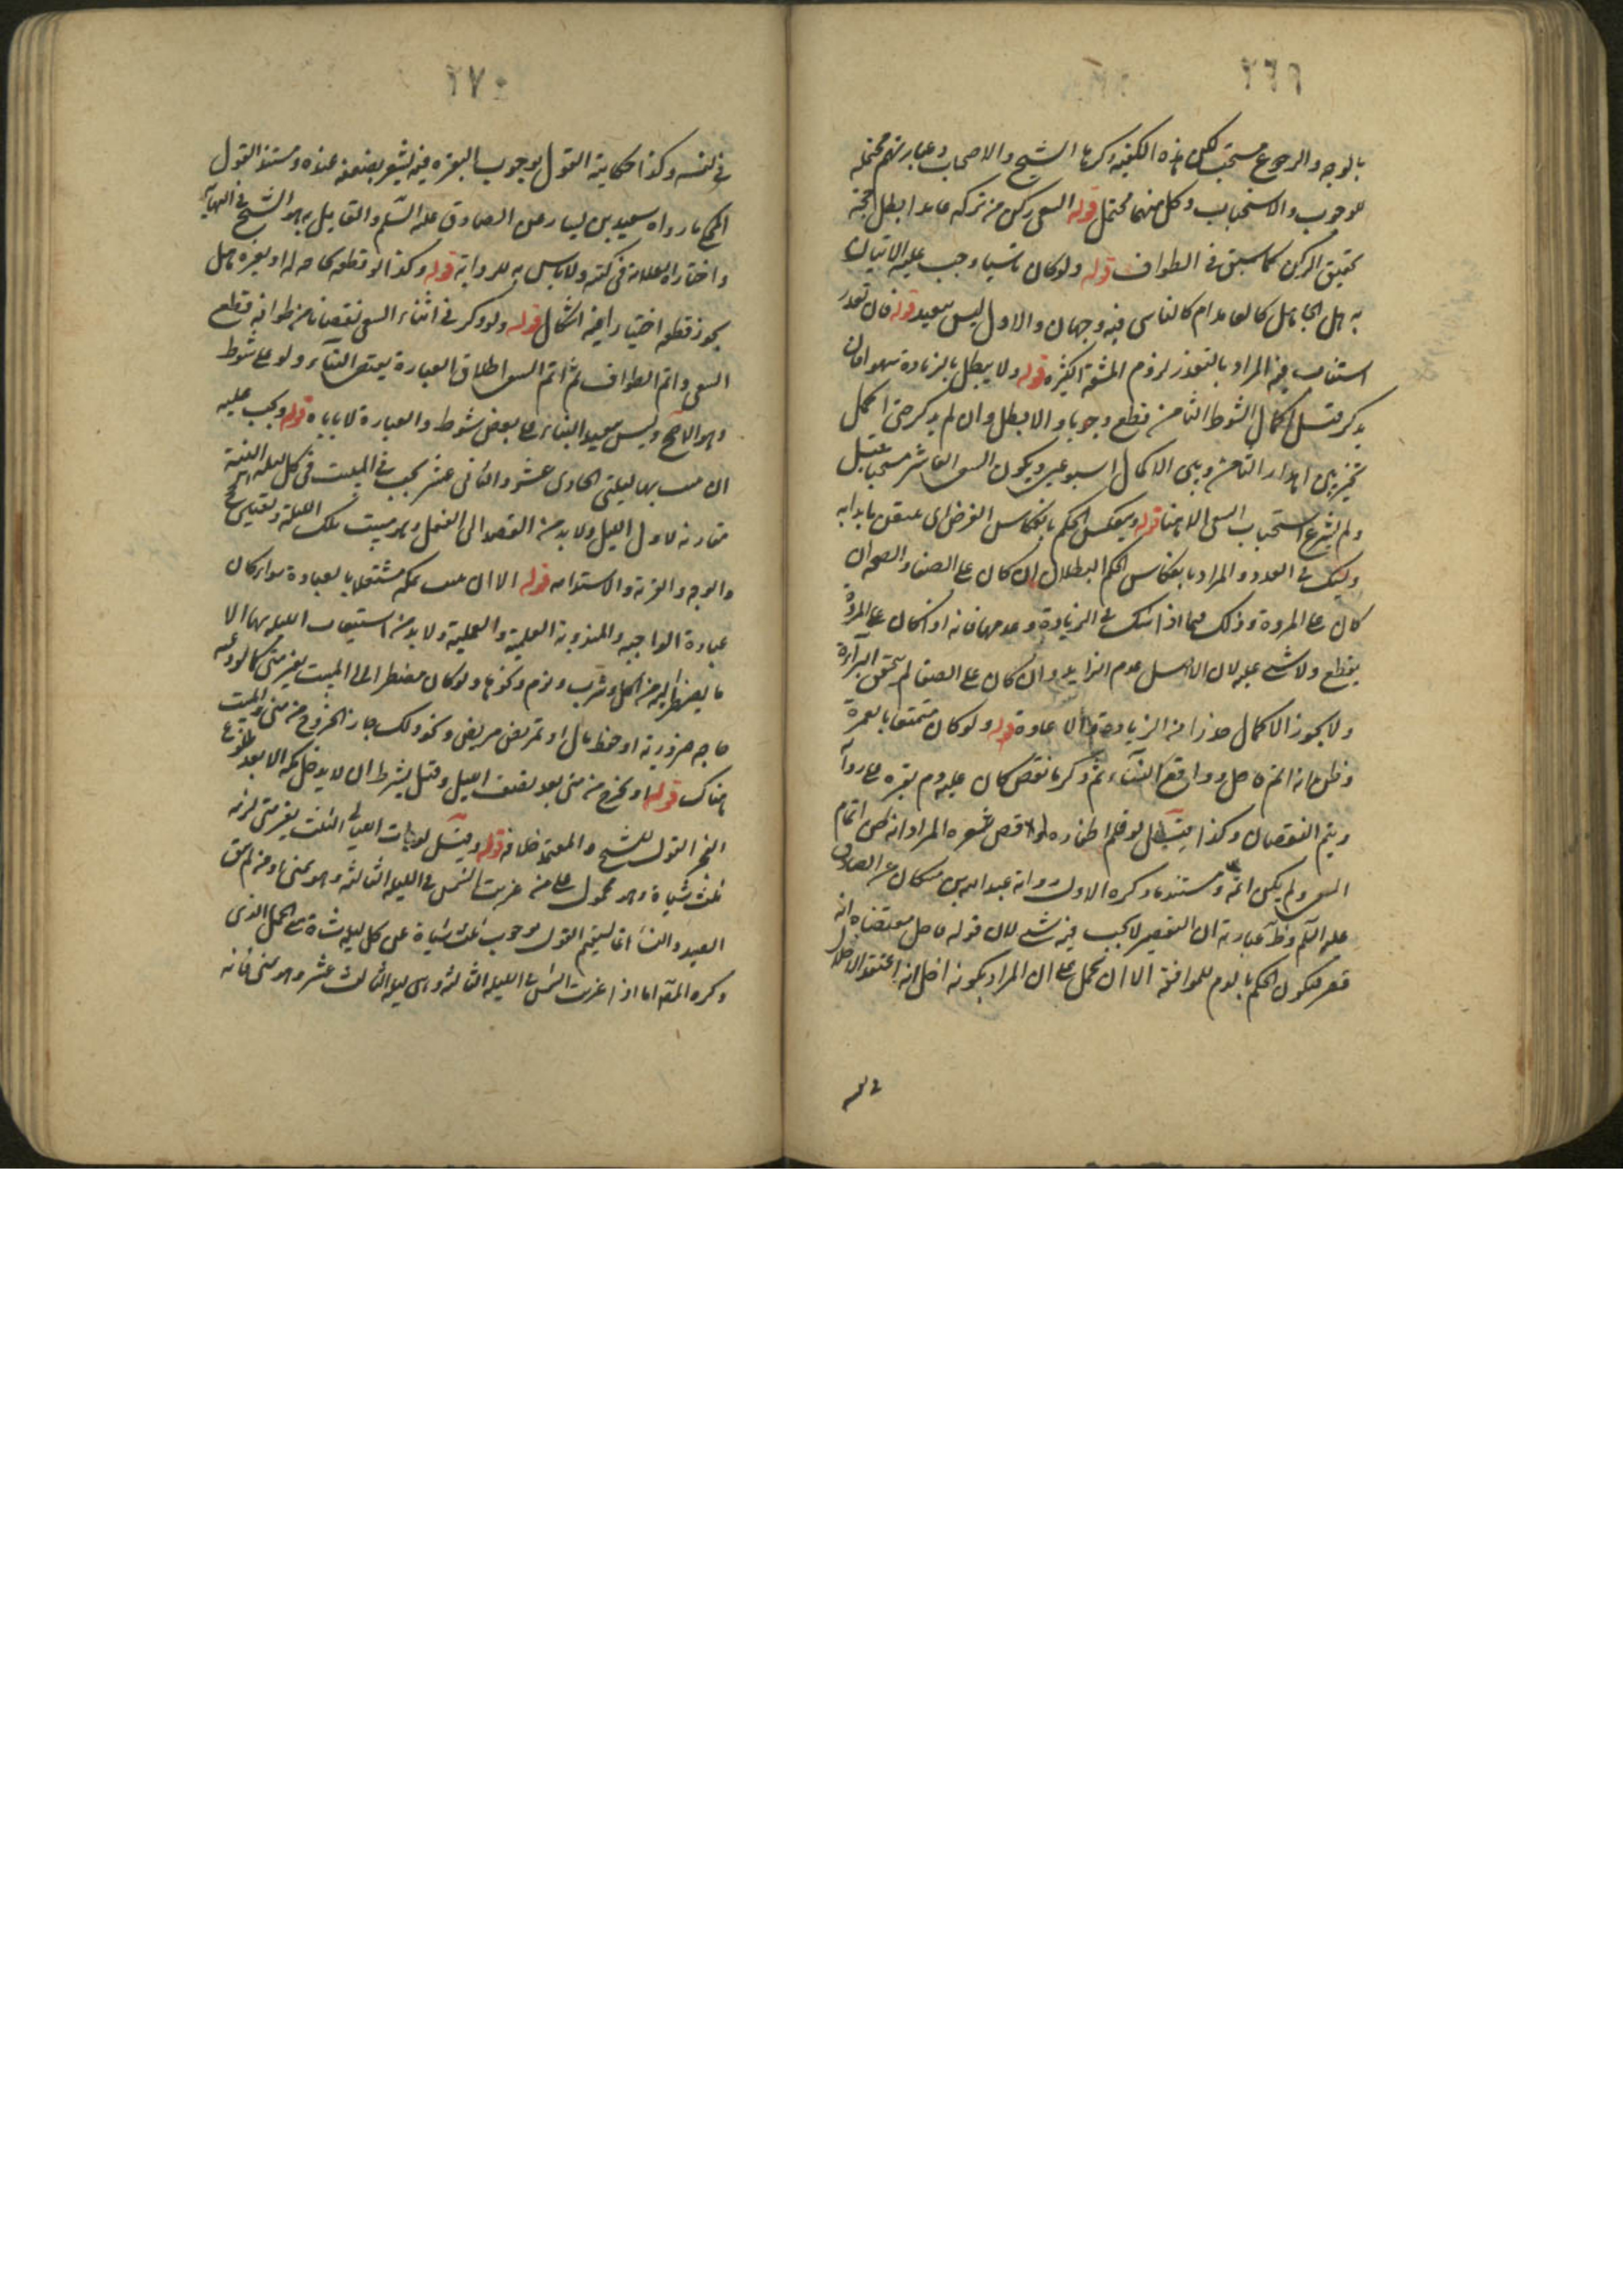 ٢٦٩
بالوجه والرجوع مستحب لكن هذه الكيفية ذكرها الشيخ والاصحاب وعبارتهم محتملة
للوجوب والاستحباب وكل منهما محتمل قوله السعي ركن من تركه عامدا بطل حجه
تحقيق الركن كما سبق في الطواف قوله ولو كان ناسيا وجب عليه الاتيان
به هل الجاهل كالعامد ام كالناسي فيه وجهان والاول ليس ببعيد قوله فان تعذر
استناب فيه المراد بالتعذر لزوم المشقة الكثيرة قوله ولا يبطل بالزيادة سهوا فان
يذكر قبل اكمال الشوط الثامن قطع وجوبا والا بطل وان لم يذكر حتى اكمل
تخير بين اهدار الثامن وبين الاكمال اسبوعين ويكون السعي العاشر مستحبا قيل
ولم يشرع استحباب السعي الا هنا قوله وينعكس الحكم بانعكاس الفرض اى تيقن ما بدا به
ويشك في العدد والمراد بانعكاس الحكم البطلان ان كان على الصفا والصحة ان
كان على المروة وذلك فيما اذا شك في الزيادة وعدمها فانه اذا كان على المروة
يقطع ولا شى عليه لان الاصل عدم الزايد وان كان على الصفا لم يتحقق البرآءة
ولا يجوز الاكمال حذرا من الزيادة والاعادة قوله ولو كان متمتعا بالعمرة
وظن انه اتم فاحل وواقع النساء ثم ذكر ما نقص كان عليه دم بقرة على رواية
ويتم النقصان وكذا قيل لو قلم اظفاره او قص شعره المراد انه ظن اتمام
السعي ولم يكن اتمه ومستند ما ذكره الاول رواية عبد الله بن مسكان عن الصادق
عليه السلم وظ عبارته ان التقصير لا يجب فيه شى لان قوله فاحل مقتضاه انه
قصر فيكون الحكم بالدم للموافقة الا ان تحمل على ان المراد بكونه احل انه اعتقد الاحلال
في نفسه
٢٧٠
في نفسه وكذا حكاية القول بوجوب البقرة فيه يشعر بضعفه عنده ومستند القول
الحكم ما رواه سعيد بن يسار عن الصادق عليه السلم والقايل به هو الشيخ في النهاية
واختاره العلامة في كتبه ولا باس به للرواية قوله وكذا لو قطعه لحاجة له او لغيره هل
يجوز قطعه اختيارا فيه اشكال قوله ولو ذكر في اثناء السعي نقصانا من طوافه قطع
السعي واتم الطواف ثم اتم السعي اطلاق العبارة يقتضي البناء ولو على شوط
وهو الاصح وليس ببعيد البناء على بعض شوط والعبارة لا تاباه قوله ويجب عليه
ان يبيت بها ليلتي الحادى عشر والثاني عشر يجب في المبيت في كل ليلة النية
مقارنة لاول الليل ولا بد من القصد الى الفعل وهو مبيت تلك الليلة وتعيين الحج
والوجه والقربة والاستدامة قوله الا ان يبيت بمكة مشتغلا بالعبادة سواء كان
عبادة الواجبة والمندوبة العلمية والعملية ولا بد من استيعاب الليلة بها الا
ما يضطر اليه من اكل وشرب ونوم ونحوها ولو كان مضطرا الى المبيت بغير منى كما لو دعته
حاجة ضرورية او حفظ مال او تمريض مريض ونحو ذلك جاز الخروج من منى والمبيت
هناك قوله او يخرج من منى بعد نصف الليل وقيل يشترط ان لا يدخل مكة الا بعد طلوع
الفجر القول للشيخ والمعتمد خلافه قوله وقيل لو بات الليالي الثلث بغير منى لزمه
ثلث شياة وهو محمول على من غربت الشمس في الليلة الثالثة وهو بمنى او من لم يتق
الصيد والنساء انما يستقيم القول بوجوب ثلث شياة عن كل ليلة شاة على الحمل الذى
ذكره المص اما اذا غربت الشمس في الليلة الثالثة وهى ليلة الثالث عشر وهو بمنى فانه